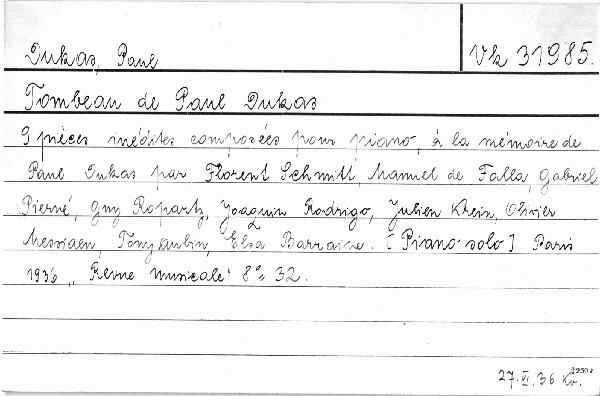 Dukas, Paul
Vk 31985.
Tombeau de Paul Dukas
9 pièces inédites composées pour piano, à la mémoire de
Paul Dukas par Florent Schmitt, Manuel de Falla, Gabriel
Pierné, Guy Ropartz, Joaquin Rodrigo, Julien Krein, Olivier
Messiaen, Tony Aubin, Elsa Barraine. [Piano-solo] Paris
1936 „Revue Musicale" 8° 32.
27. VI. 36 Kv.